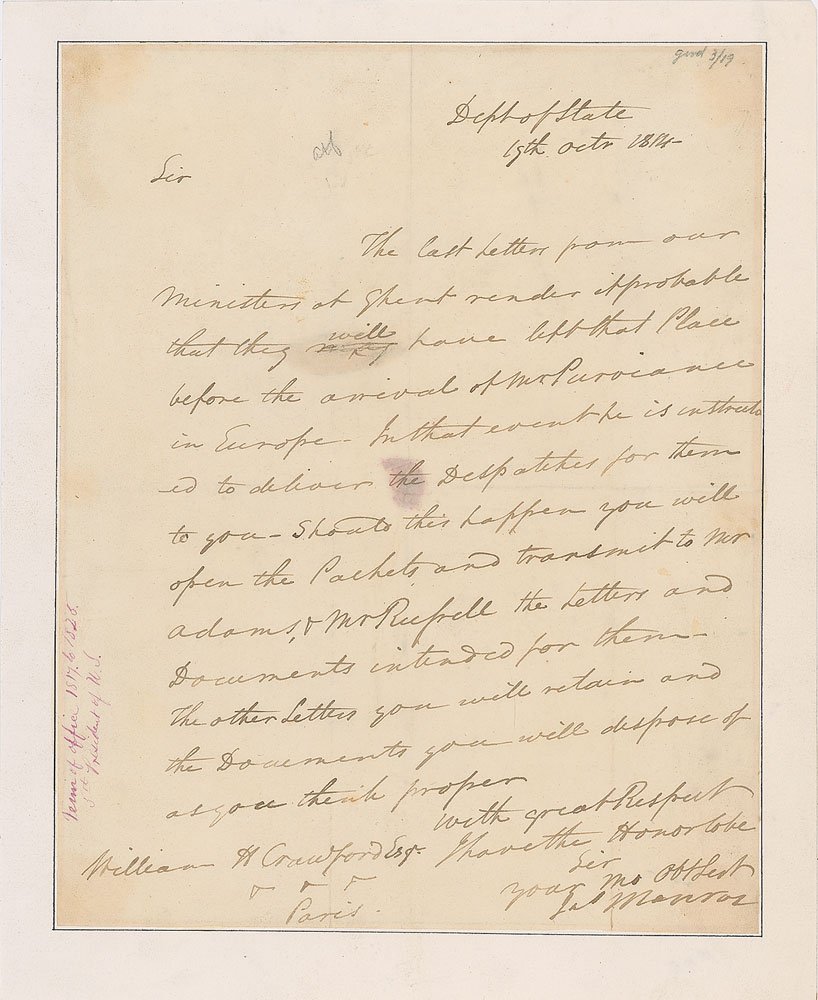 good 3/19
Dept of State
19th Octr 1814
Sir
The last letters from our
Ministers at Ghent render it probable
that they will have left that Place
before the arrival of Mr Purviance
in Europe - In that event he is instruct
ed to deliver the Despatches for them
to you - Should this happen you will
open the Packets and transmit to Mr
Adams, & Mr Russell the Letters and
Documents intended for them -
The other Letters you will retain and
the Documents you will dispose of
as you think proper
with great Respect
I have the Honor to be
Sir
your Mo Obt Sert
Jas Monroe
William H Crawford Esqr.
Paris.
Term of office 1817 to 1825.
5th President of U.S.